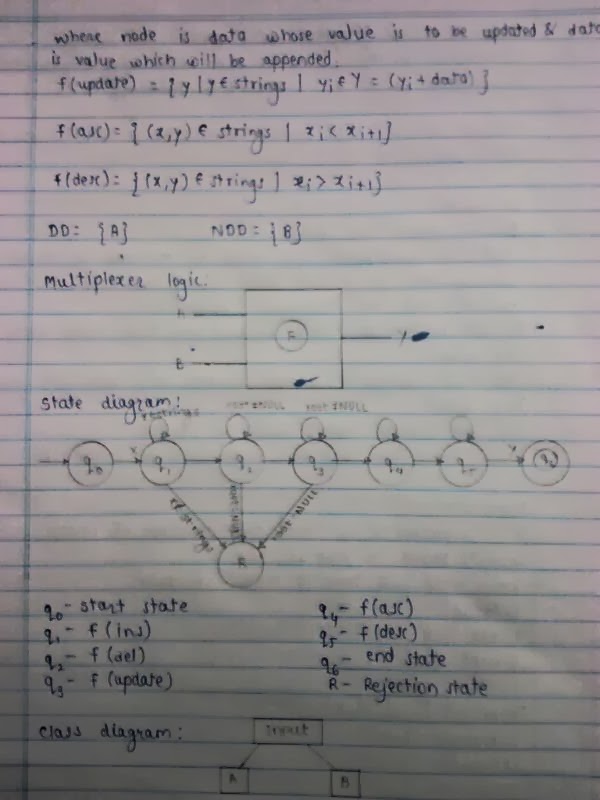 where node is data whose value is to be updated & data
is value which will be appended.
f(update) = { y | y ∈ strings | yi ∈ Y = (yi + data) }
f(asc) = { (x,y) ∈ strings | xi < xi+1 }
f(desc) = { (x,y) ∈ strings | xi > xi+1 }
DD = {A} NDD = {B}
Multiplexer logic:
A
F
Y
B
State diagram:
root≠NULL root≠NULL
q0 x q1 q2 q3 q4 q5 Y q6
x∉strings root=NULL root=NULL
R
q0 - start state q4 - f(asc)
q1 - f(ins) q5 - f(desc)
q2 - f(del) q6 - end state
q3 - f(update) R - Rejection state
Class diagram:
Input
A B